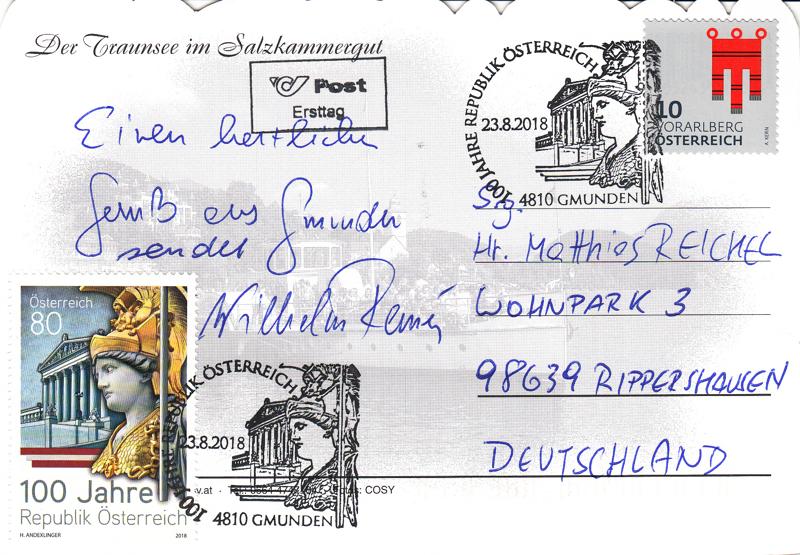 Der Traunsee im Salzkammergut
Post
Ersttag
Einen herzlichen
Gruß aus Gmunden
sendet
Wilhelm
100 JAHRE REPUBLIK ÖSTERREICH
23.8.2018
4810 GMUNDEN
10
VORARLBERG
ÖSTERREICH
A. KERN
Hr. Matthias REICHEL
WOHNPARK 3
98639 RIPPERSHAUSEN
DEUTSCHLAND
Österreich
80
100 Jahre
Republik Österreich
H. ANDEXLINGER 2018
REPUBLIK ÖSTERREICH
23.8.2018
4810 GMUNDEN
COSY